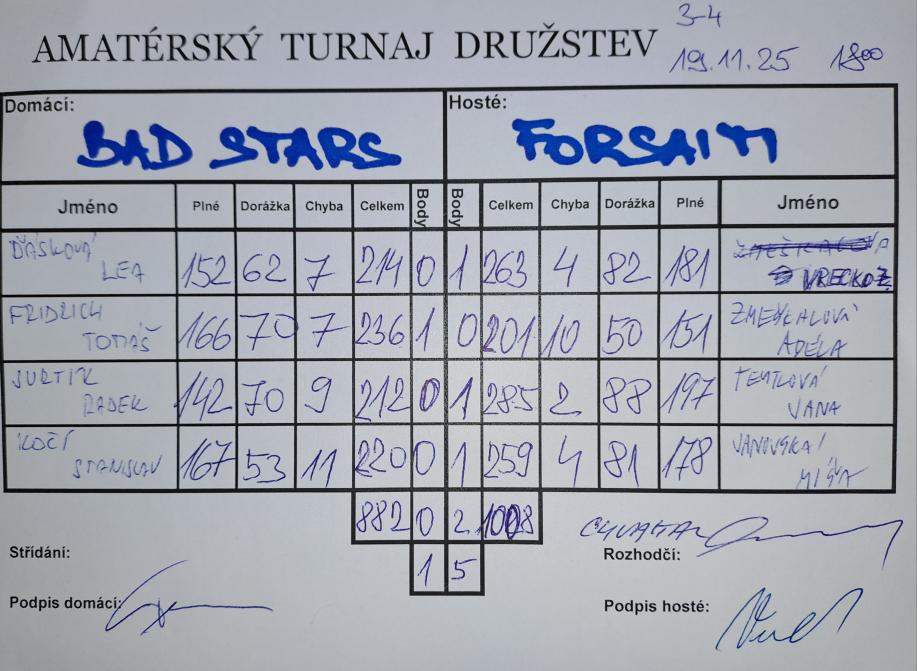 3-4
AMATÉRSKÝ TURNAJ DRUŽSTEV
19.11.25 1800
Domácí: Hosté:
BAD STARS FORSAITI
Jméno Plné Dorážka Chyba Celkem Body Body Celkem Chyba Dorážka Plné Jméno
LEA 152 62 7 214 0 1 263 4 82 181 VRECKO Z.
FRIDRICH TOMÁŠ 166 70 7 236 1 0 201 10 50 151 ADÉLA
RADEK 142 70 9 212 0 1 285 2 88 197 JANA
KOČÍ STANISLAV 167 53 11 220 0 1 259 4 81 178 MIŠA
882 0 2 1008
1 5
Střídání: Rozhodčí:
Podpis domácí: Podpis hosté: